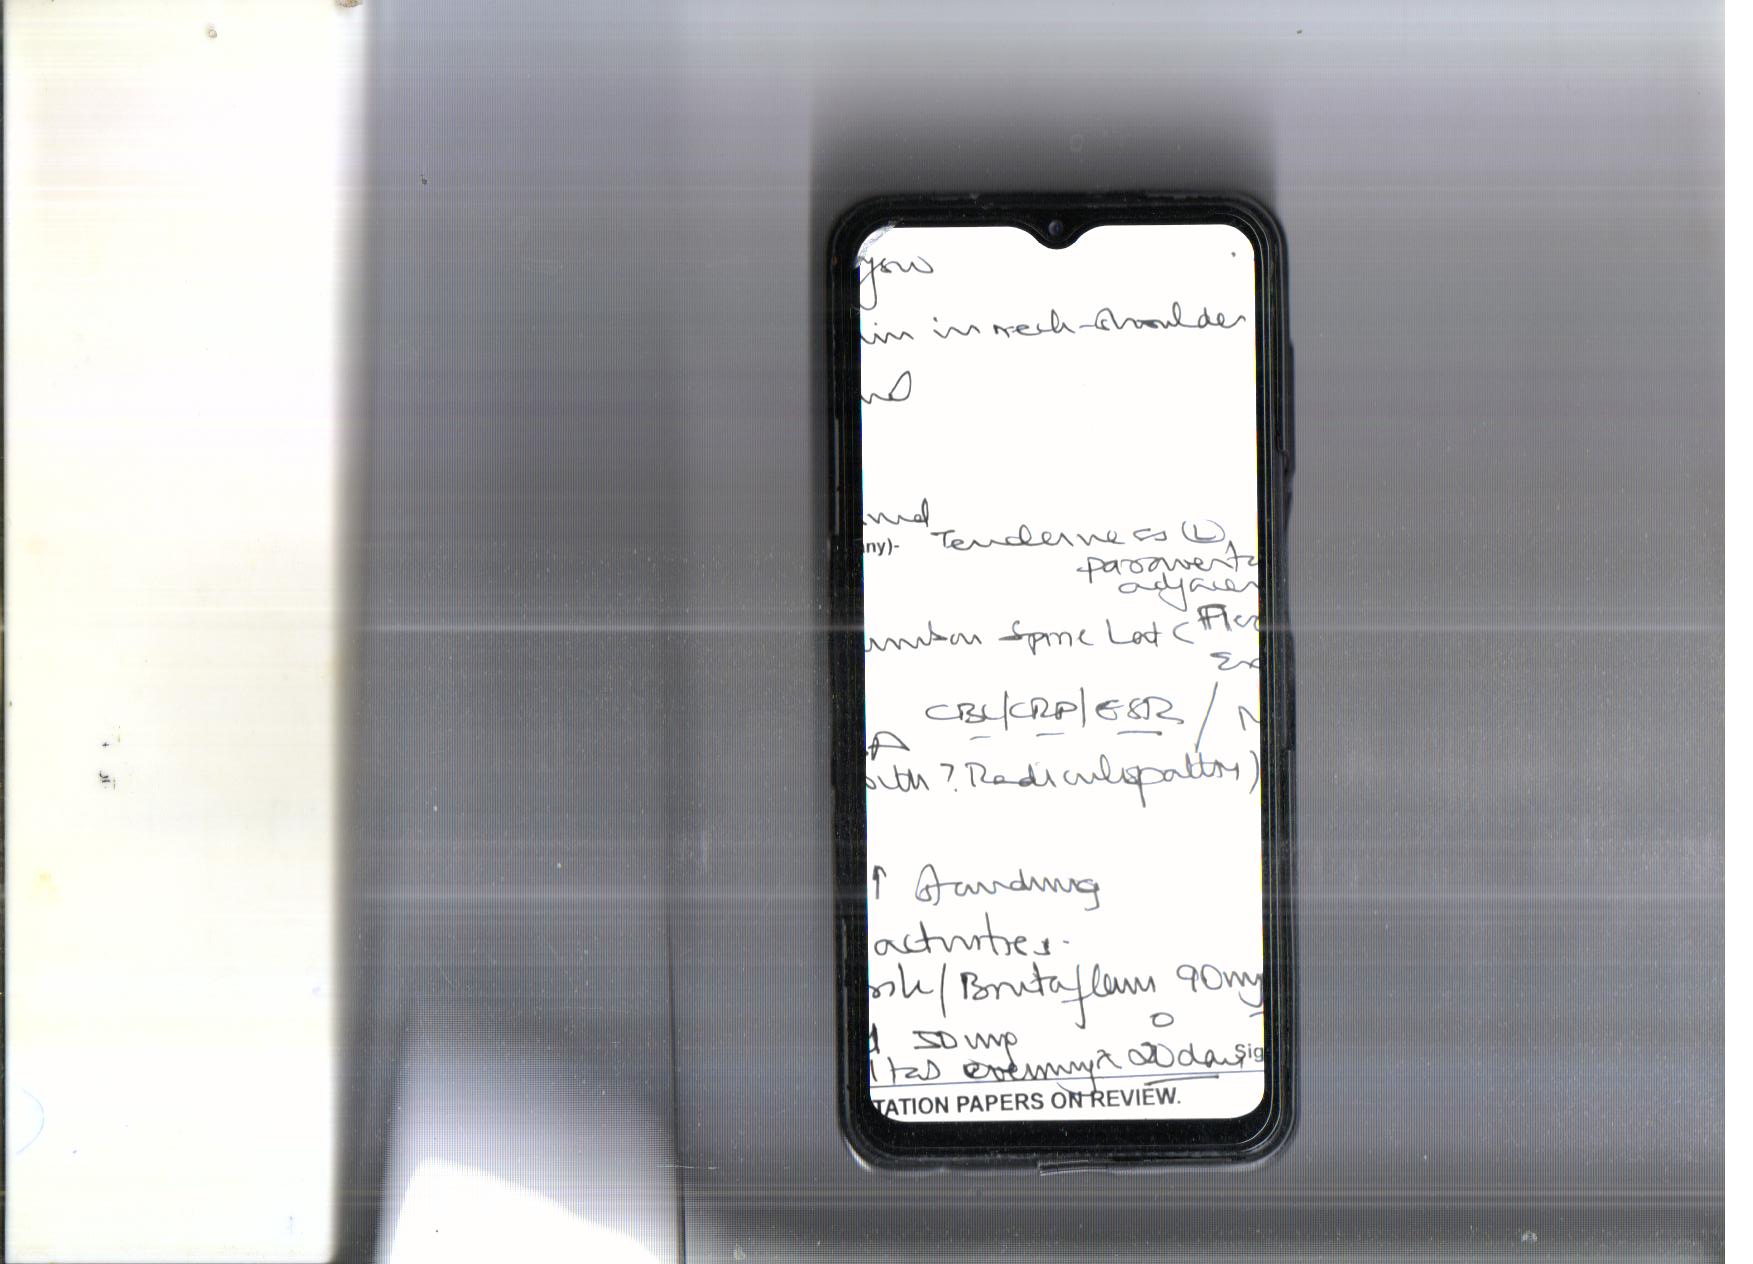 you
in in neck-shoulder
and
ny)- Tenderness (L)
paravert
adjacen
Spine Lat (Flex
Ex
CBC/CRP/ESR / N
with ? Radiculopathy)
↑ Standing
activities.
90mg
50 mg
1 tab evening x 20 days Sig
TATION PAPERS ON REVIEW.